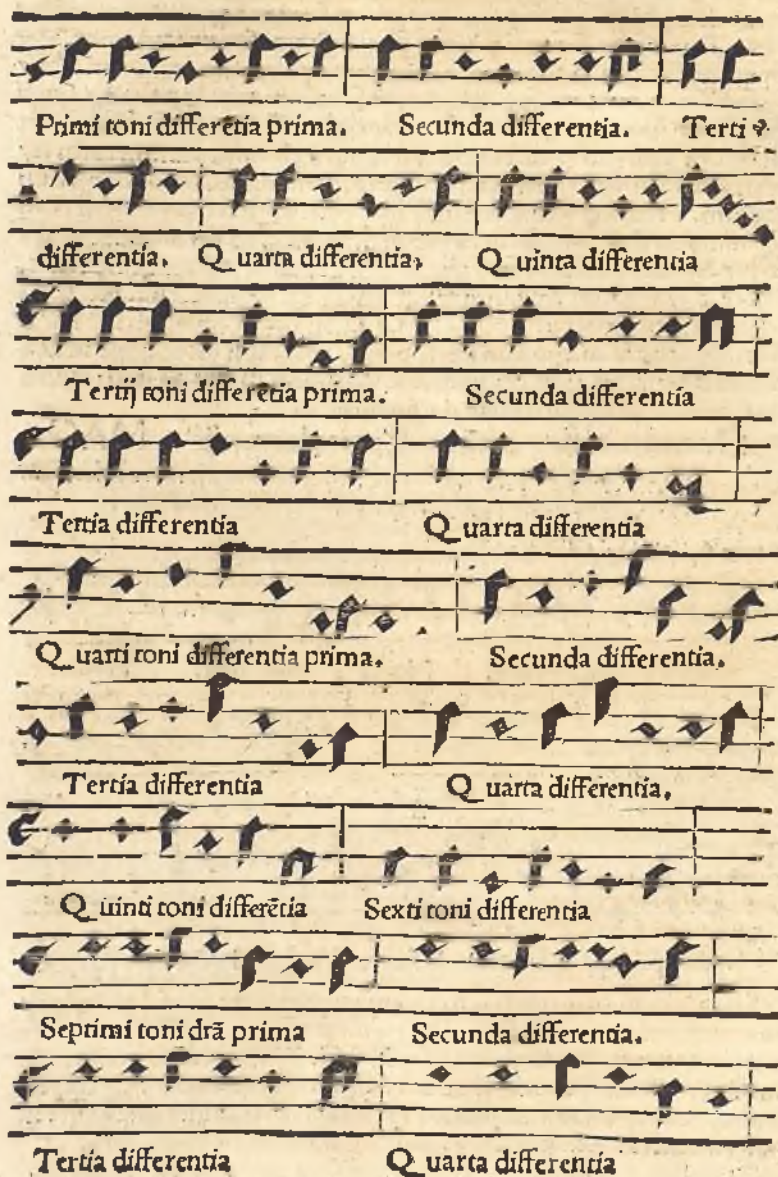 Primi toni differētia prima. Secunda differentia. Terti
differentia. Quarta differentia, Quinta differentia
Tertij toni differētia prima. Secunda differentia
Tertia differentia Quarta differentia
Quarti toni differentia prima. Secunda differentia.
Tertia differentia Quarta differentia.
Quinti toni differētia Sexti toni differentia
Septimi toni drā prima Secunda differentia.
Tertia differentia Quarta differentia